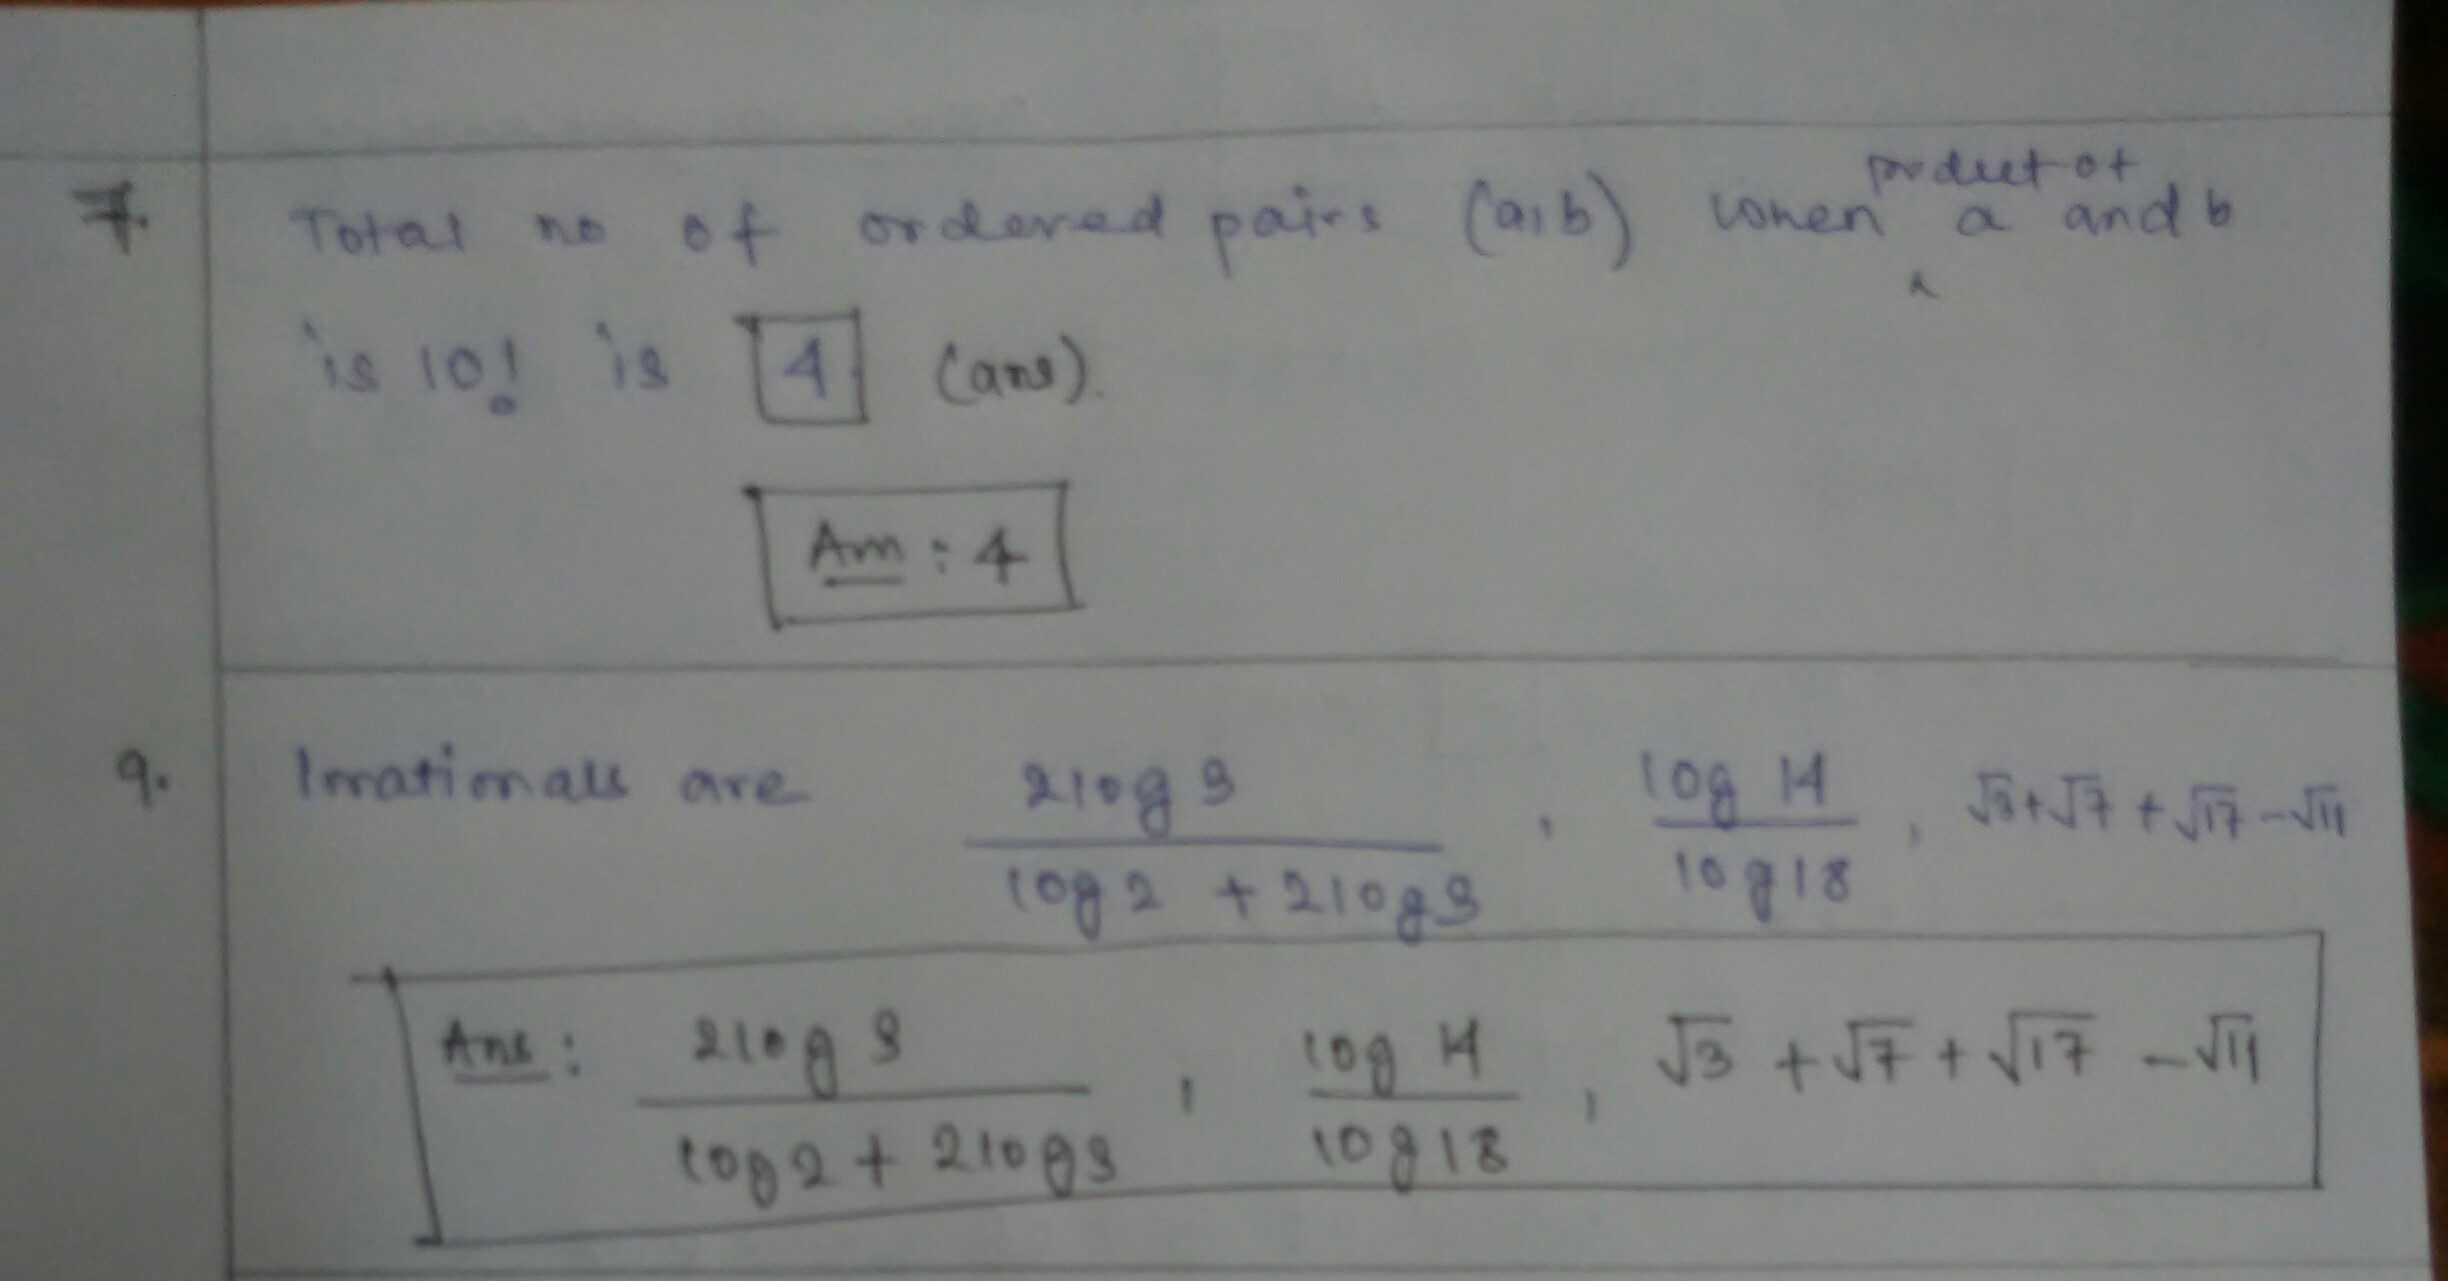 7. Total no of ordered pairs (a,b) when product of a and b
is 10! is 4 (ans).
Ans : 4
9. Irrationals are 2log3 / log2 + 2log3 , log 14 / log 18 , √3+√7+√17-√11
Ans : 2log3 / log2 + 2log3 , log 14 / log 18 , √3 + √7 + √17 - √11